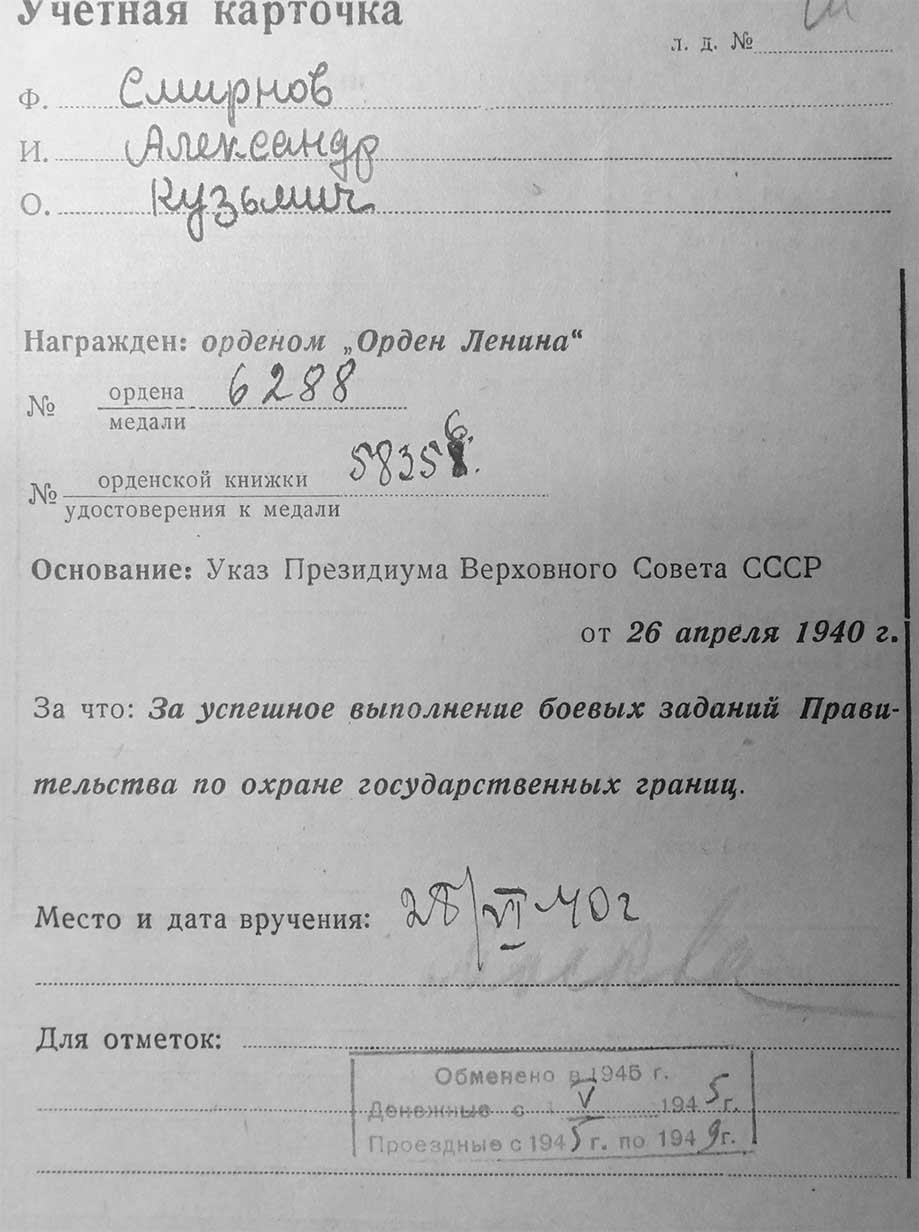 Учетная карточка
л. д. №
Ф. Смирнов
И. Александр
О. Кузьмич
Награжден: орденом „Орден Ленина“
№ ордена 6288
медали
№ орденской книжки 58356.
удостоверения к медали
Основание: Указ Президиума Верховного Совета СССР
от 26 апреля 1940 г.
За что: За успешное выполнение боевых заданий Прави-
тельства по охране государственных границ.
Место и дата вручения: 28/VI-40 г
Москва
Для отметок:
Обменено в 1945 г.
Денежные с 1 V 1945 г.
Проездные с 1945 г. по 1949 г.